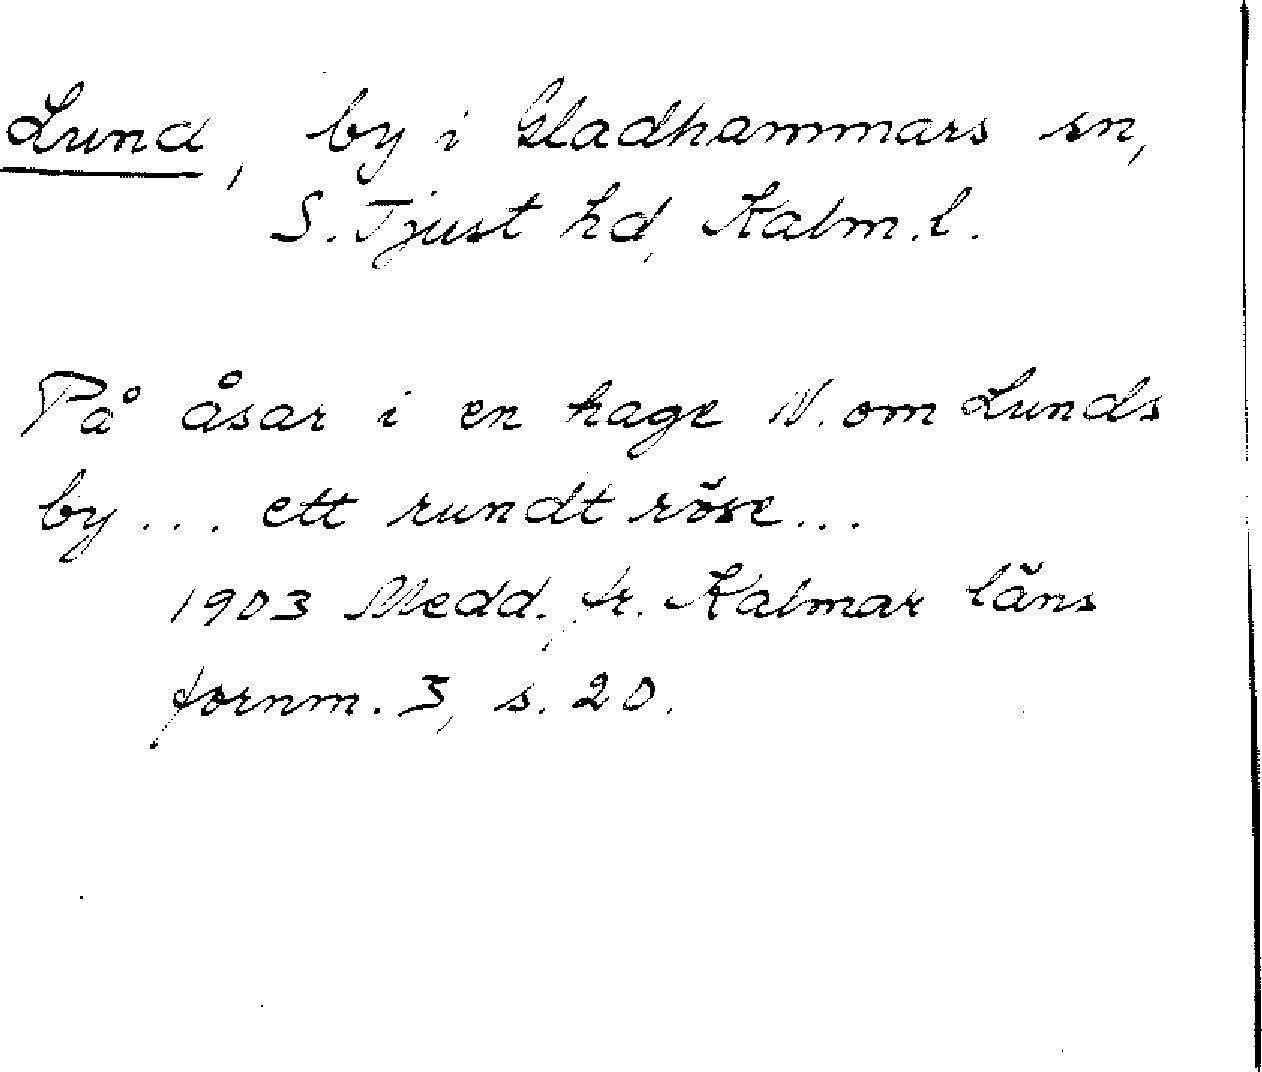 Lund, by i Gladhammars sn,
S. Tjust hd, Kalm. l.
På åsar i en hage N. om Lunds
by... ett rundt röse...
1903 Medd. fr. Kalmar läns
fornm. 3, s. 20.